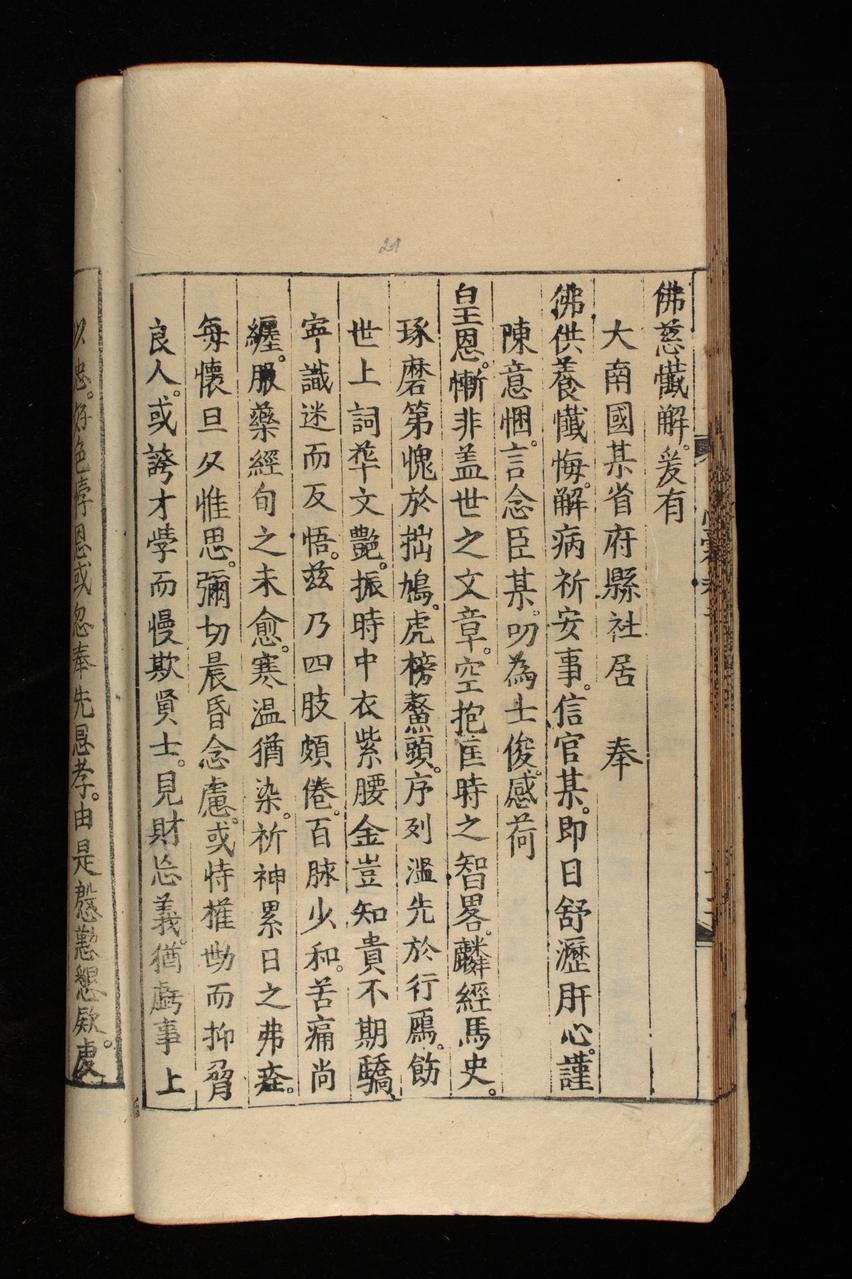 佛慈懺解。爰有
大南國某省府縣社居 奉
佛供養懺悔。解病祈安事。信官某。即日舒瀝肝心。謹
陳意悃。言念臣某。叨為士俊。感荷
皇恩。慚非盖世之文章。空抱匡時之智畧。麟經馬史。
琢磨第愧於拙鳩。虎榜鰲頭。序列濫先於行鴈。飭
世上詞華文艷。振時中衣紫腰金豈知貴不期驕。
寧識迷而反悟。茲乃四肢頗倦。百脉少和。苦痛尚
纏。服藥經旬之未愈。寒温猶染。祈神累日之弗
每懷旦夕惟思。彌切晨昏念慮。或恃權勢而抑脅
良人。或誇才學而慢欺賢士。見財忘義。猶虧事上
以忠。好色悖恩或忽奉先思孝。由是慇懃懇厥虔。
21